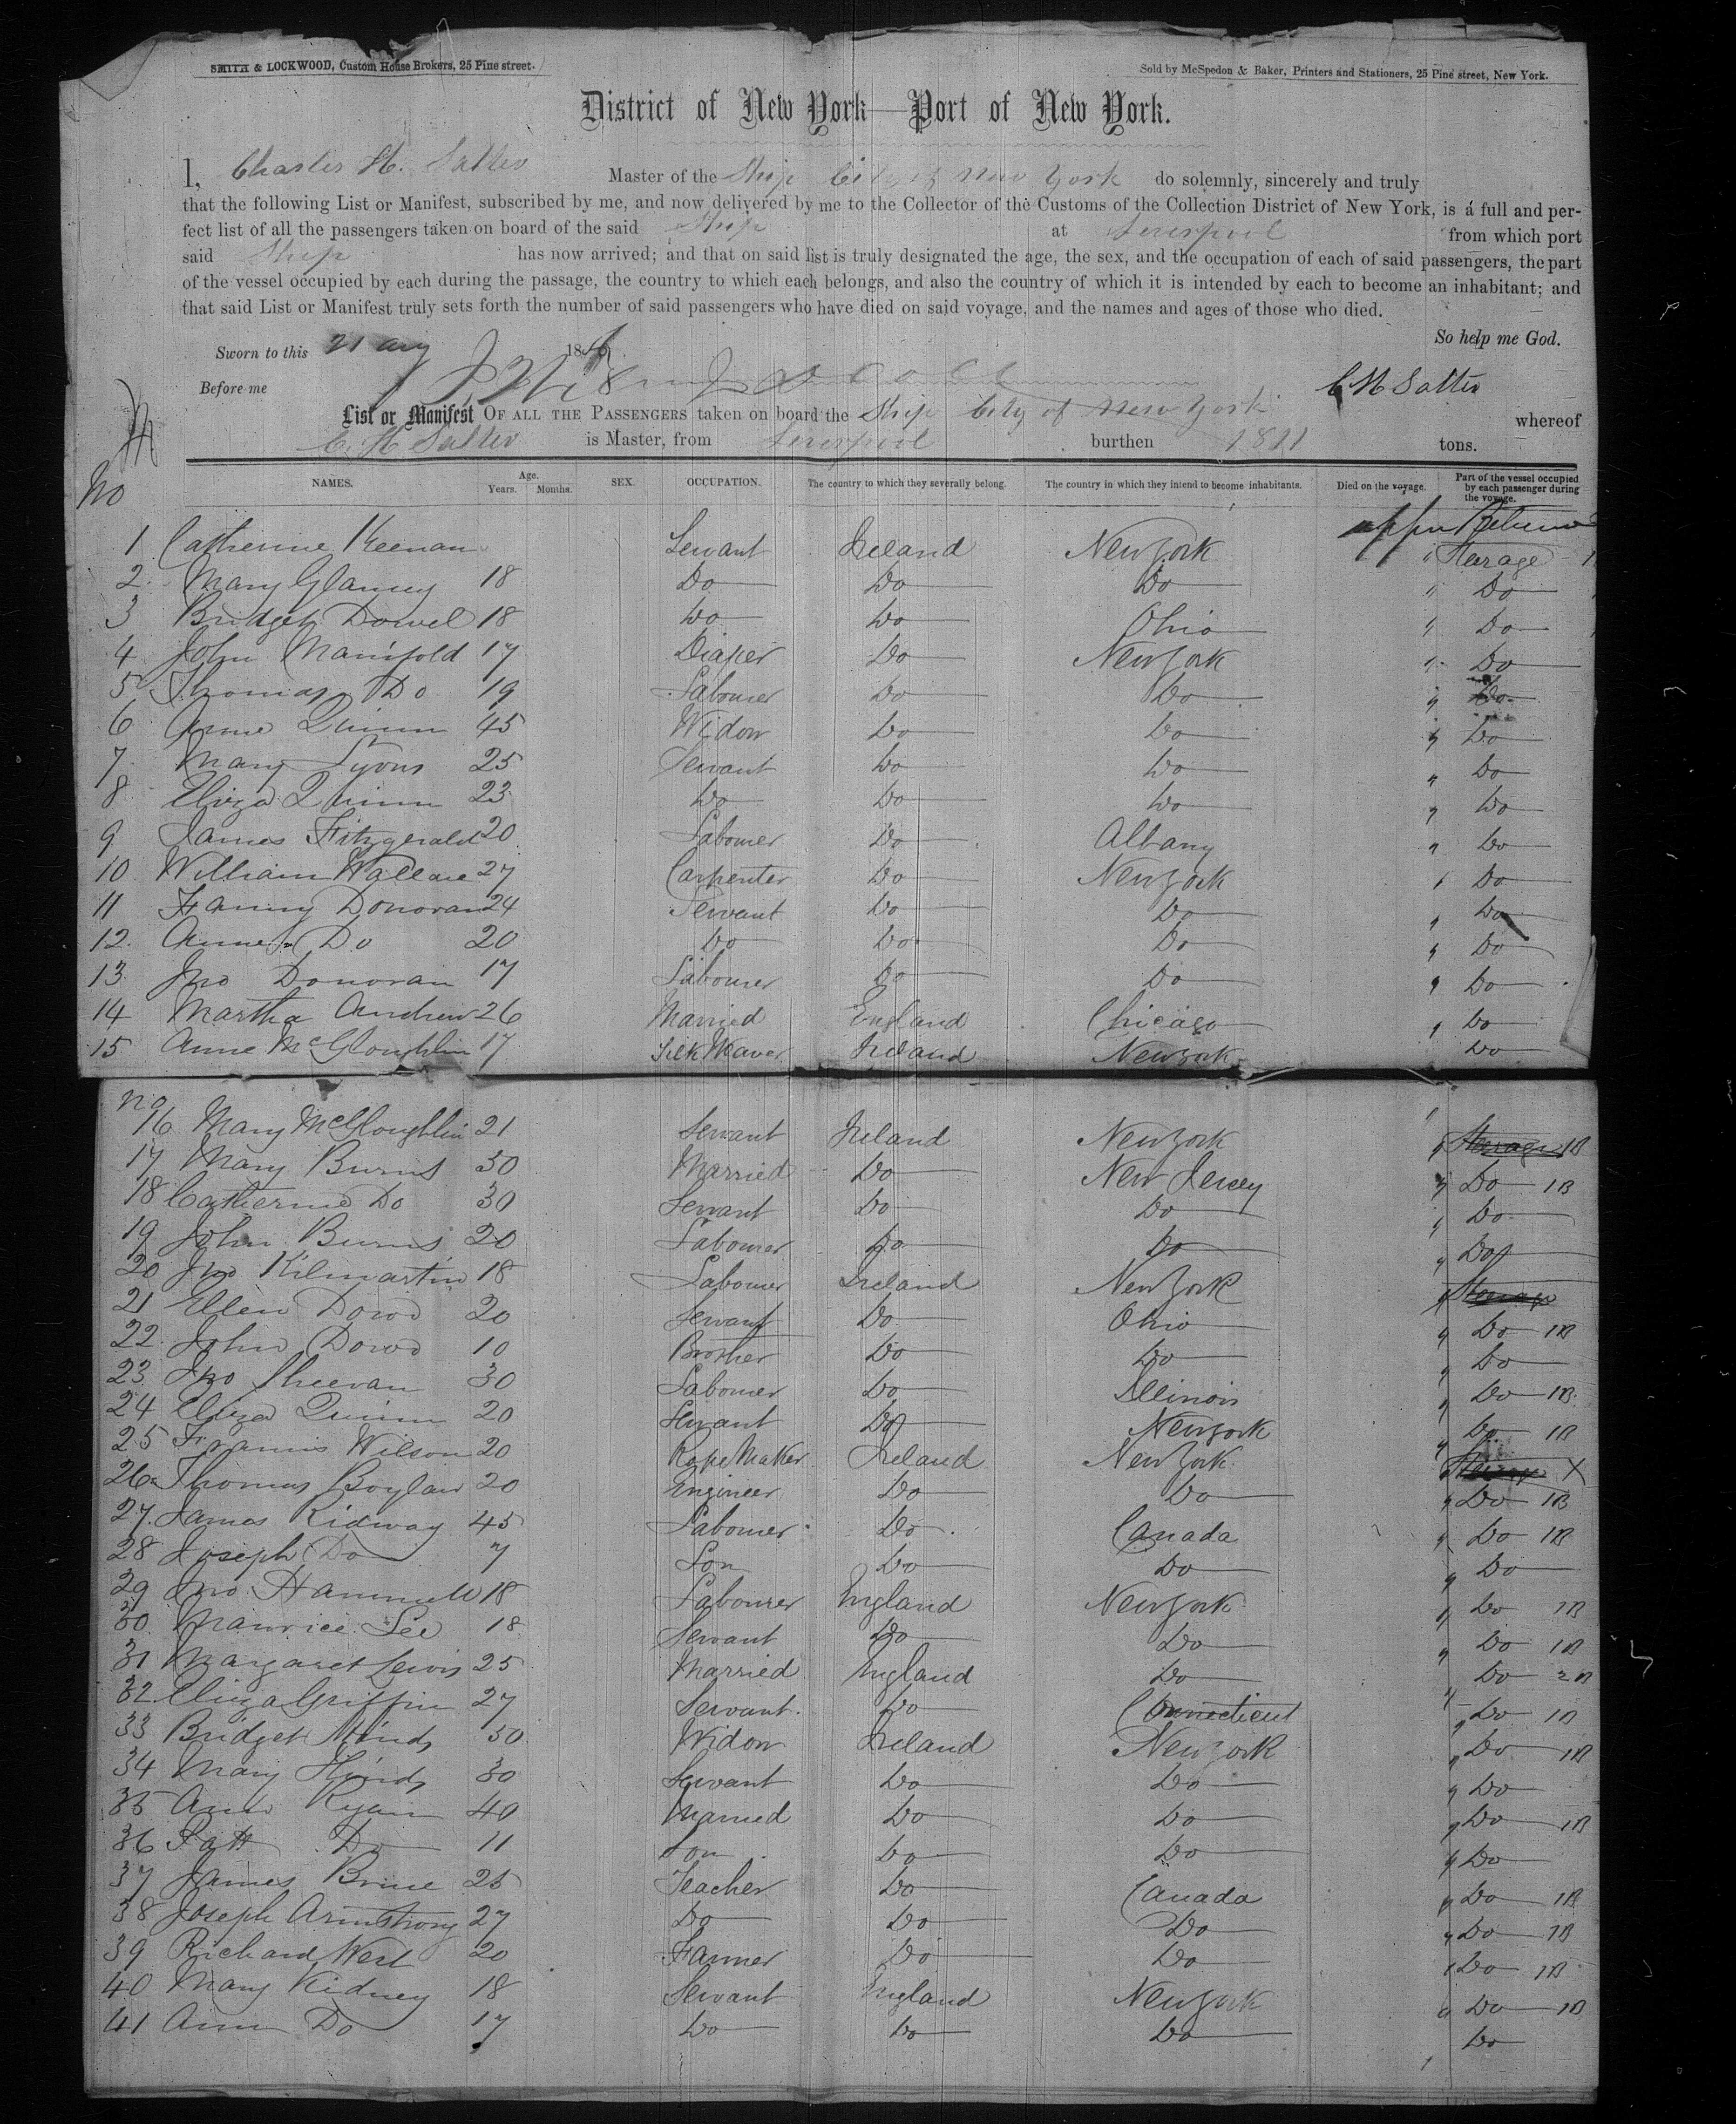 SMITH & LOCKWOOD, Custom House Brokers, 25 Pine street.
Sold by McSpedon & Baker, Printers and Stationers, 25 Pine street, New York.
District of New York—Port of New York.
I, Charles H. Salter Master of the Ship City of New York do solemnly, sincerely and truly
that the following List or Manifest, subscribed by me, and now delivered by me to the Collector of the Customs of the Collection District of New York, is a full and per-
fect list of all the passengers taken on board of the said Ship at Liverpool from which port
said Ship has now arrived; and that on said list is truly designated the age, the sex, and the occupation of each of said passengers, the part
of the vessel occupied by each during the passage, the country to which each belongs, and also the country of which it is intended by each to become an inhabitant; and
that said List or Manifest truly sets forth the number of said passengers who have died on said voyage, and the names and ages of those who died.
So help me God.
Sworn to this 21 aug 186
Before me C H Salter
List or Manifest OF ALL THE PASSENGERS taken on board the Ship City of New York whereof
C. H Salter is Master, from Liverpool burthen 1811 tons.
No NAMES. Age. Years. Months. SEX. OCCUPATION. The country to which they severally belong. The country in which they intend to become inhabitants. Died on the voyage. Part of the vessel occupied by each passenger during the voyage.
upper Between
1 Catherine Keenan Servant Ireland New York " Stearage 1
2 Mary Glancy 18 Do Do Do " Do
3 Bridget Dowel 18 Do Do Ohio " Do
4 John Manifold 17 Diaper Do New York " Do
5 Thomas Do 19 Labourer Do Do " Do
6 Anne Quinn 45 Widow Do Do " Do
7 Mary Lyons 25 Servant Do Do " Do
8 Eliza Quinn 23 Do Do Do " Do
9 James Fitzgerald 20 Labourer Do Albany " Do
10 William Wallace 27 Carpenter Do New York " Do
11 Fanny Donovan 24 Servant Do Do " Do
12 Anne Do 20 Do Do Do " Do
13 Jno Donovan 17 Labourer Do Do " Do
14 Martha Andrew 26 Married England Chicago " Do
15 Anne McGloughlin 17 Silk Waver Ireland New York Do
no
16 Mary McGloughlin 21 Servant Ireland New York " Stearage 1B
17 Mary Burns 30 Married Do New Jersey " Do 1B
18 Catherine Do 30 Servant Do Do " Do
19 John Burns 20 Labourer Do Do " Do
20 Jno Kilmartin 18 Labourer Ireland New York " Stearage
21 Ellen Dowd 20 Servant Do Ohio " Do 1B
22 John Dowd 10 Brother Do Do " Do
23 Jno Sheevan 30 Labourer Do Illinois " Do 1B
24 Eliza Quinn 20 Servant Do New York " Do 1B
25 Francis Wilson 20 Rope Maker Ireland New York Stearage X
26 Thomas Boylan 20 Engineer Do Do " Do 1B
27 James Kidway 45 Labourer Do Canada " Do 1B
28 Joseph Do 7 Son Do Do " Do
29 Jno Hammill 18 Labourer England New York " Do 1B
30 Maurice Lee 18 Servant Do Do " Do 1B
31 Margaret Lewis 25 Married England Do Do 2B
32 Eliza Griffin 27 Servant Do Connecticut " Do 1B
33 Bridget Hinds 50 Widow Ireland New York " Do 1B
34 Mary Hinds 30 Servant Do Do " Do
35 Ann Ryan 40 Married Do Do " Do 1B
36 Patt Do 11 Son Do Do " Do
37 James Brine 25 Teacher Do Canada " Do 1B
38 Joseph Armstrong 27 Do Do Do " Do 1B
39 Richard West 20 Farmer Do Do " Do 1B
40 Mary Kidney 18 Servant England New York " Do 1B
41 Ann Do 17 Do Do Do Do